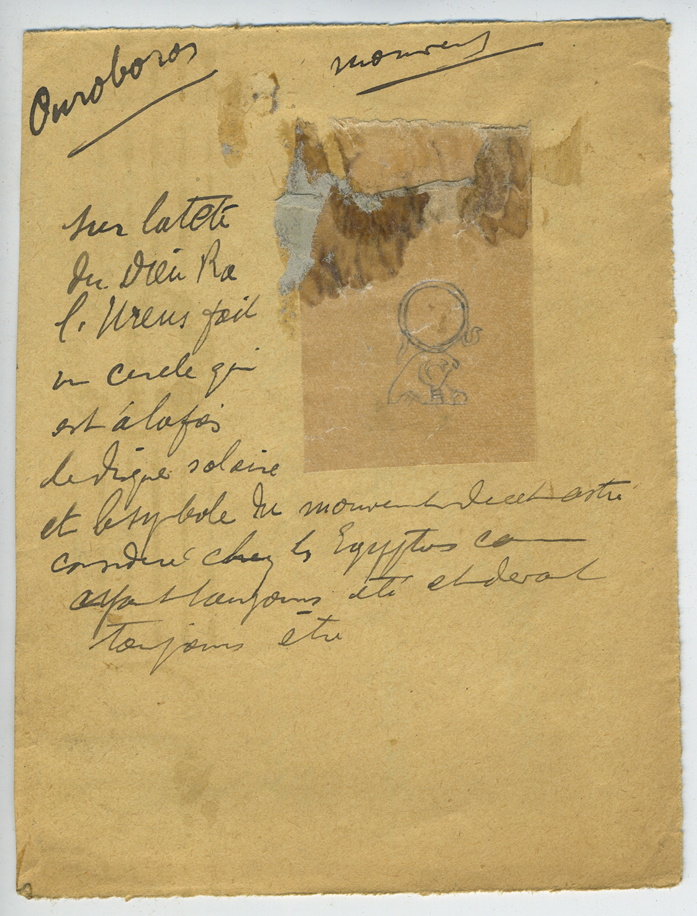 Ouroboros mouvent
sur la tete
du Dieu Ra
l'Ureus fait
un cercle qui
est à la fois
le disque solaire
et le symbole du mouvement de cet astre
considéré chez les Egyptiens comme
ayant toujours été et devant
toujours être